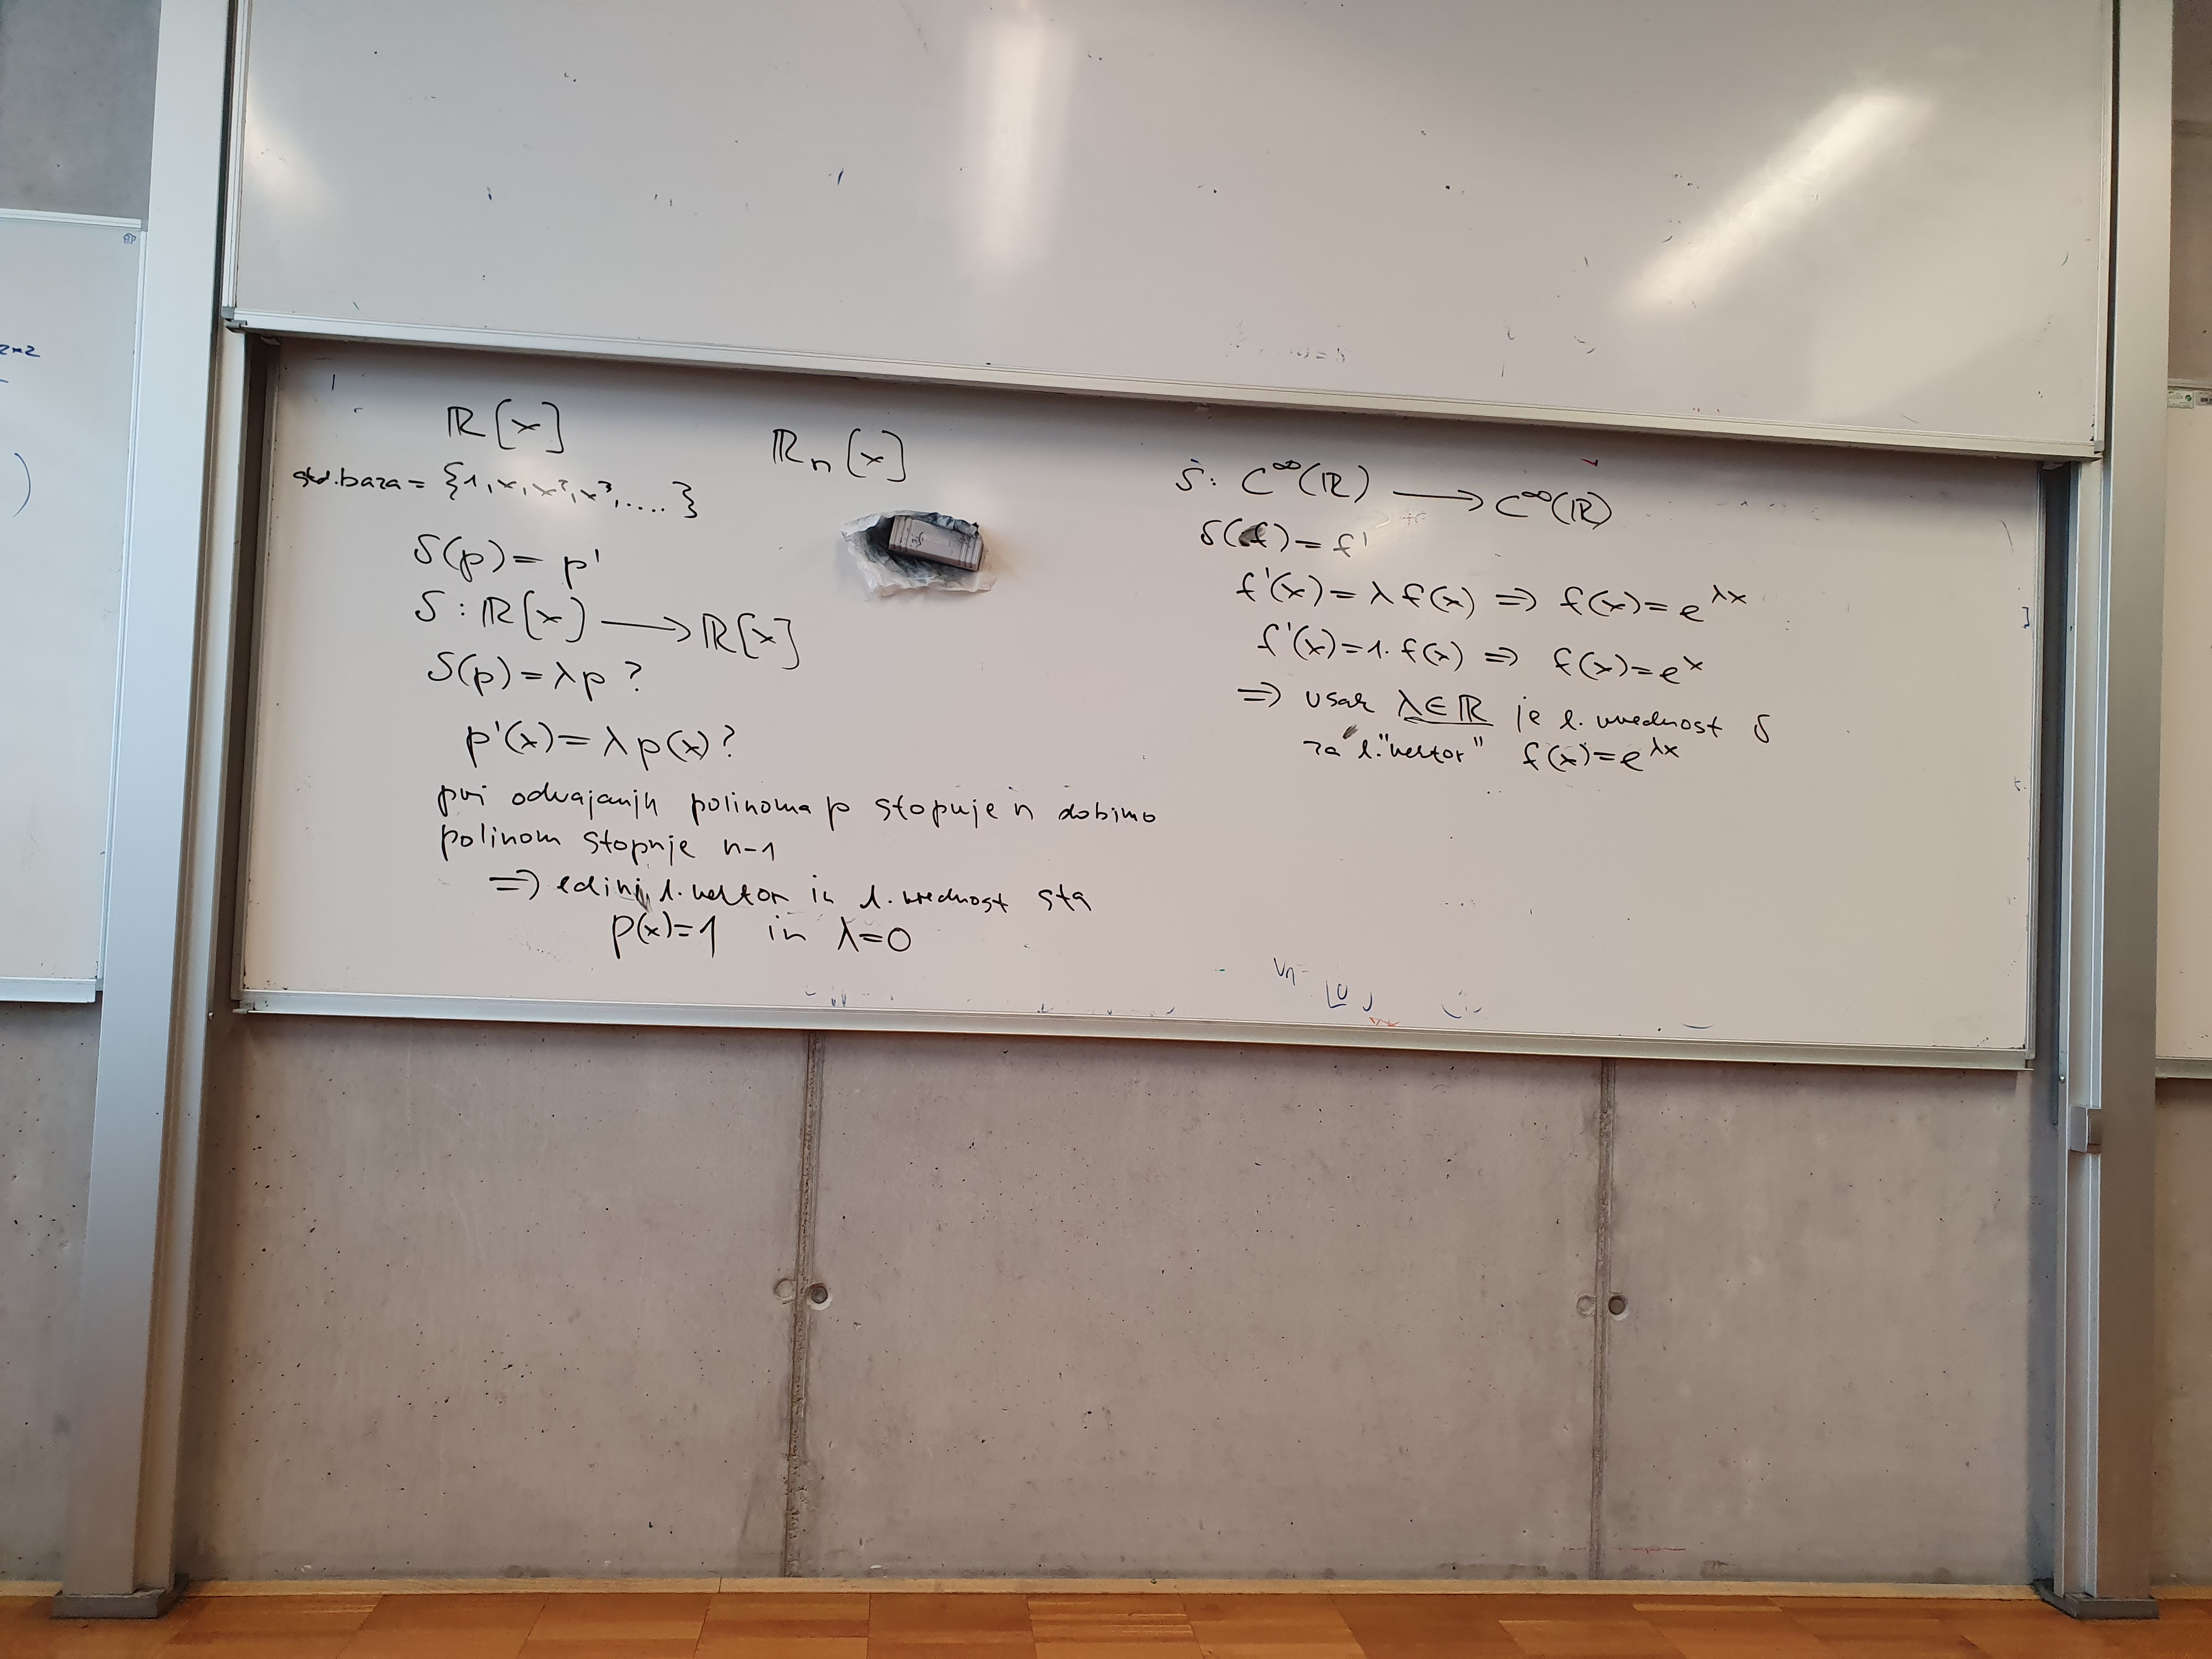 ℝ[x]
ℝₙ[x]
std.baza = {1, x, x², x³, ....}
δ(p) = p'
δ : ℝ[x] ⟶ ℝ[x]
δ(p) = λp ?
p'(x) = λ p(x) ?
pri odvajanju polinoma p stopnje n dobimo
polinom stopnje n-1
⇒ edini l. vektor in l. vrednost sta
p(x)=1 in λ=0
δ: C^∞(ℝ) ⟶ C^∞(ℝ)
δ(f) = f'
f'(x) = λ f(x) ⇒ f(x) = e^{λx}
f'(x) = 1. f(x) ⇒ f(x) = e^x
⇒ vsak λ∈ℝ je l. vrednost δ
za l."vektor" f(x) = e^{λx}
2×2
)